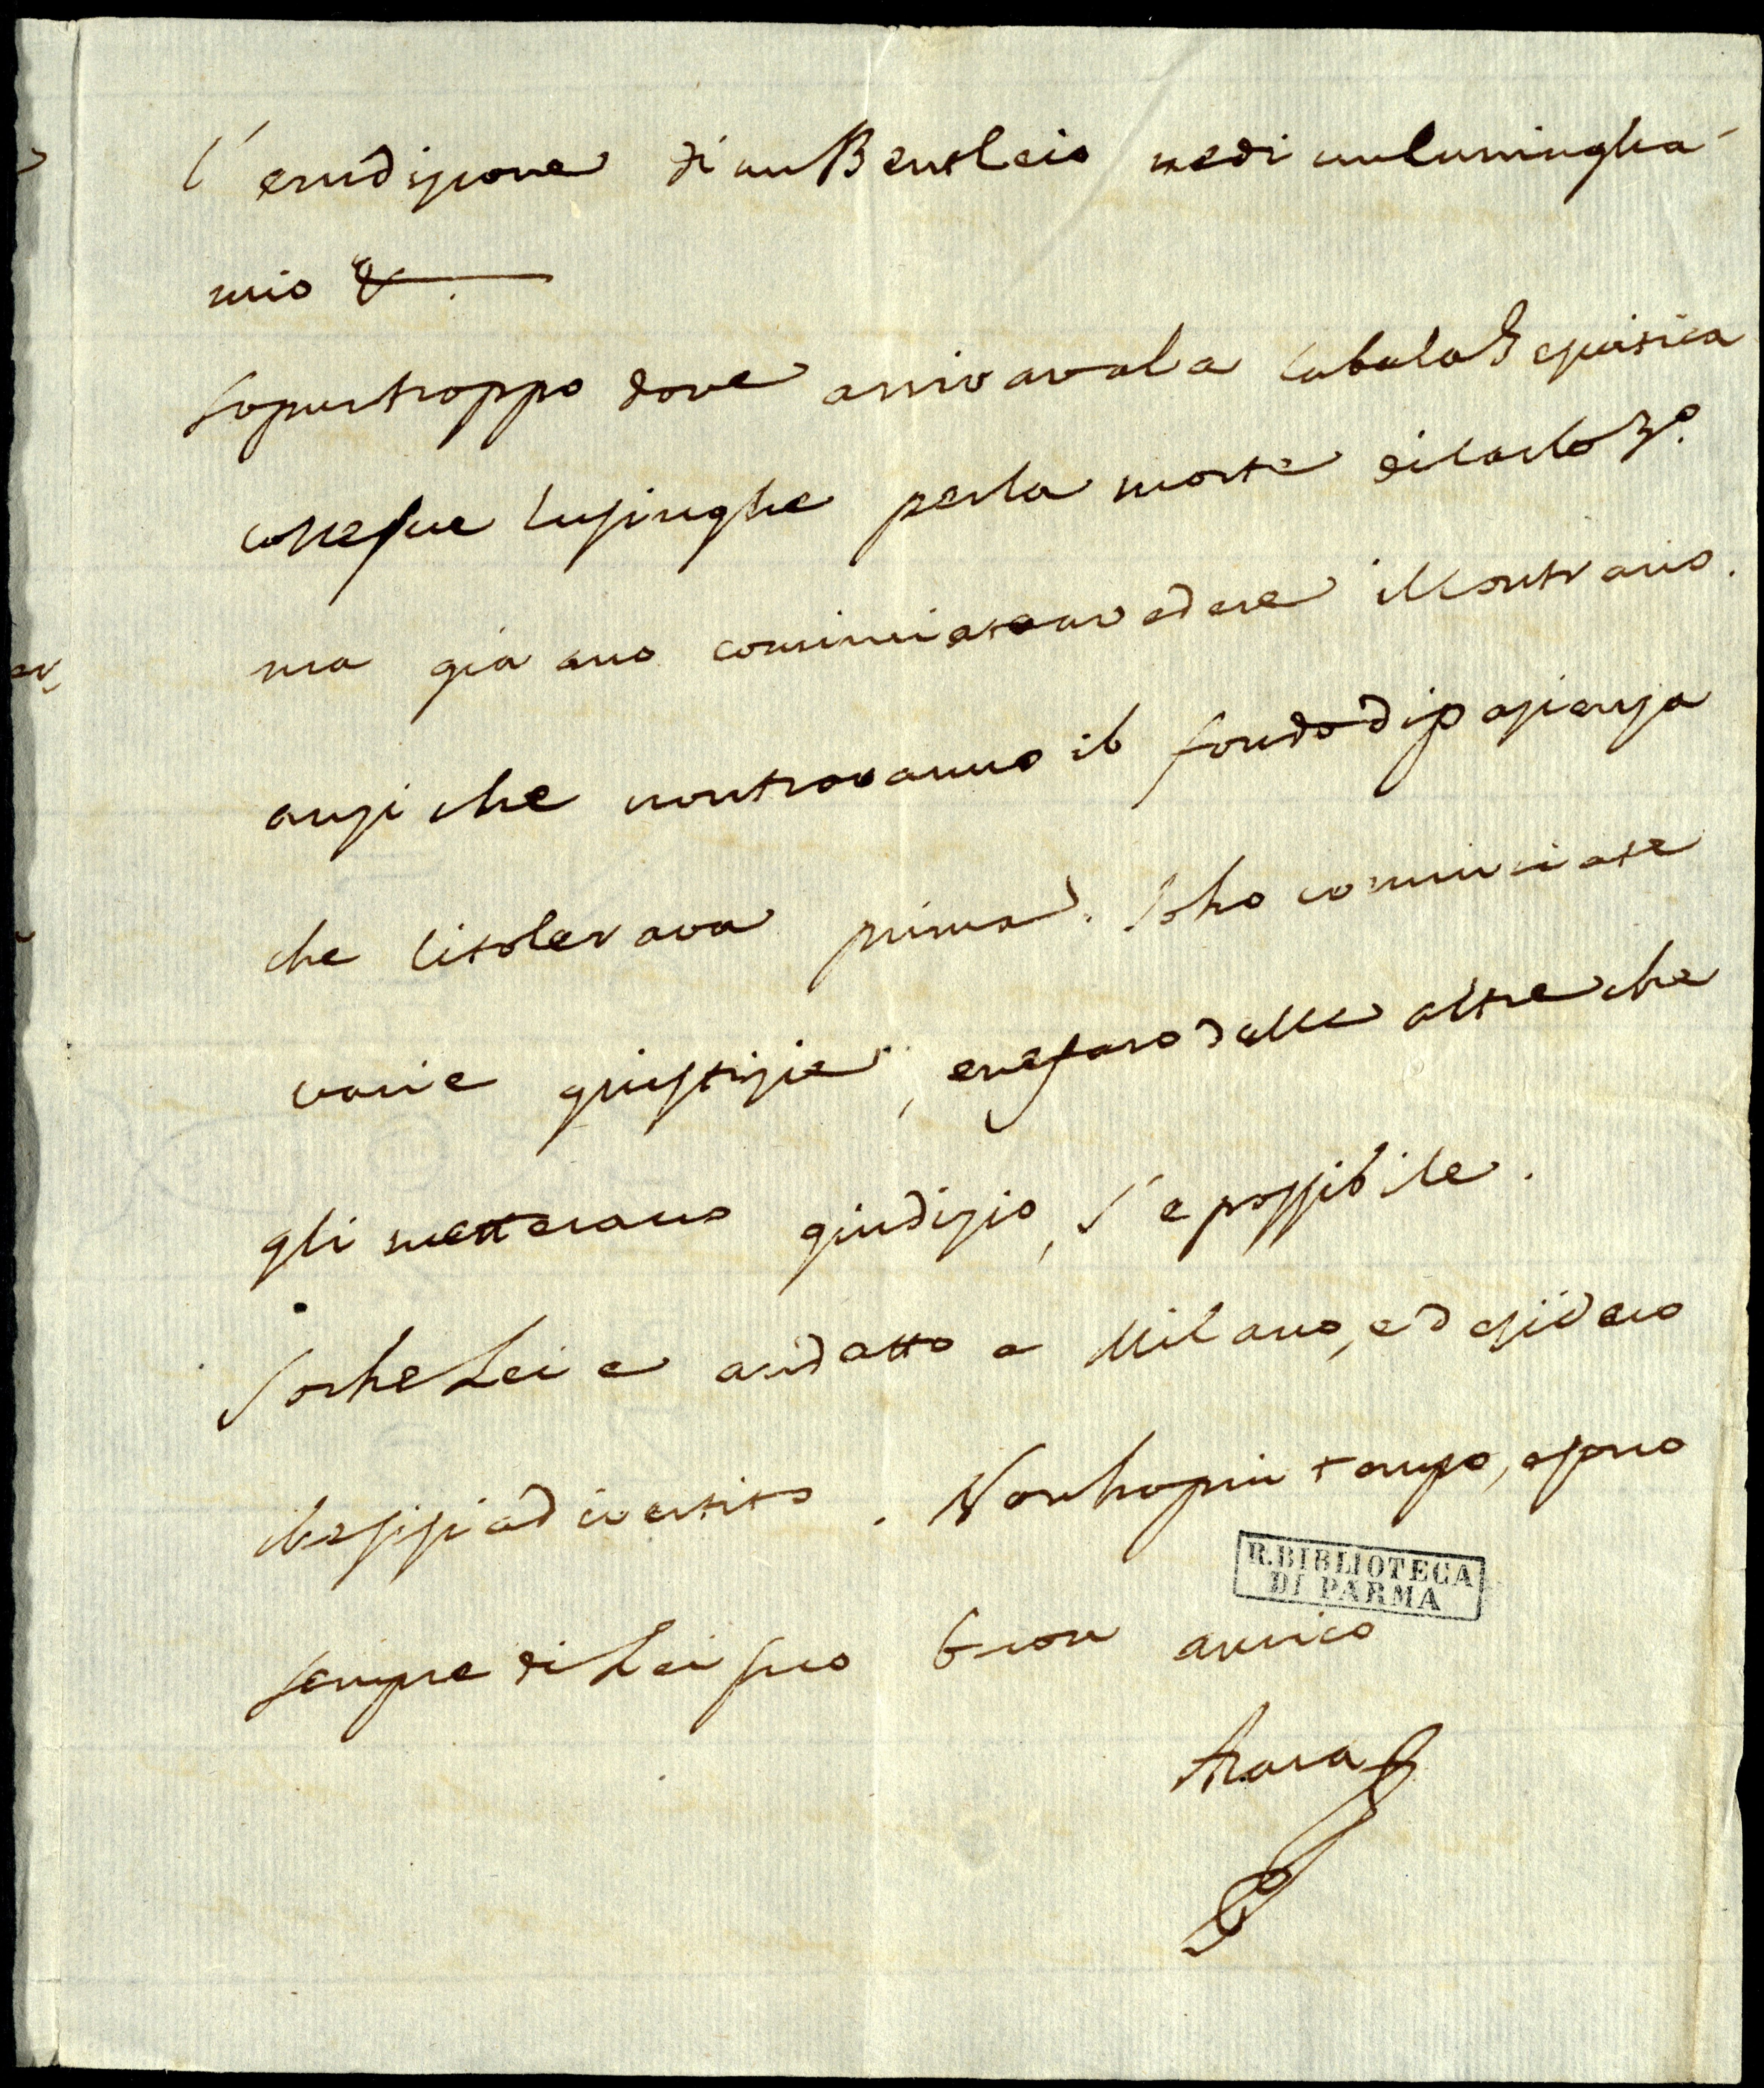 l'erudizione di un Bentleio ne di un Cuningha-
mio &.
So pur troppo dove arrivava la Cabala Gesuitica
colle sue lusinghe per la morte di Carlo 3º.
ma già ano cominciato a vedere il contrario.
anzi che non trovanno il fondo di pazienza
che li tolerava prima. Io ho cominciate
varie giustizie, e ne faro dalle altre che
gli metterano giudizio, s'e possibile.
So che Lei e andatto a Milano, e desidero
che si sia divertito. Non ho piu tempo, e sono
sempre di Lei suo buon amico
Azara
R. BIBLIOTECA
DI PARMA